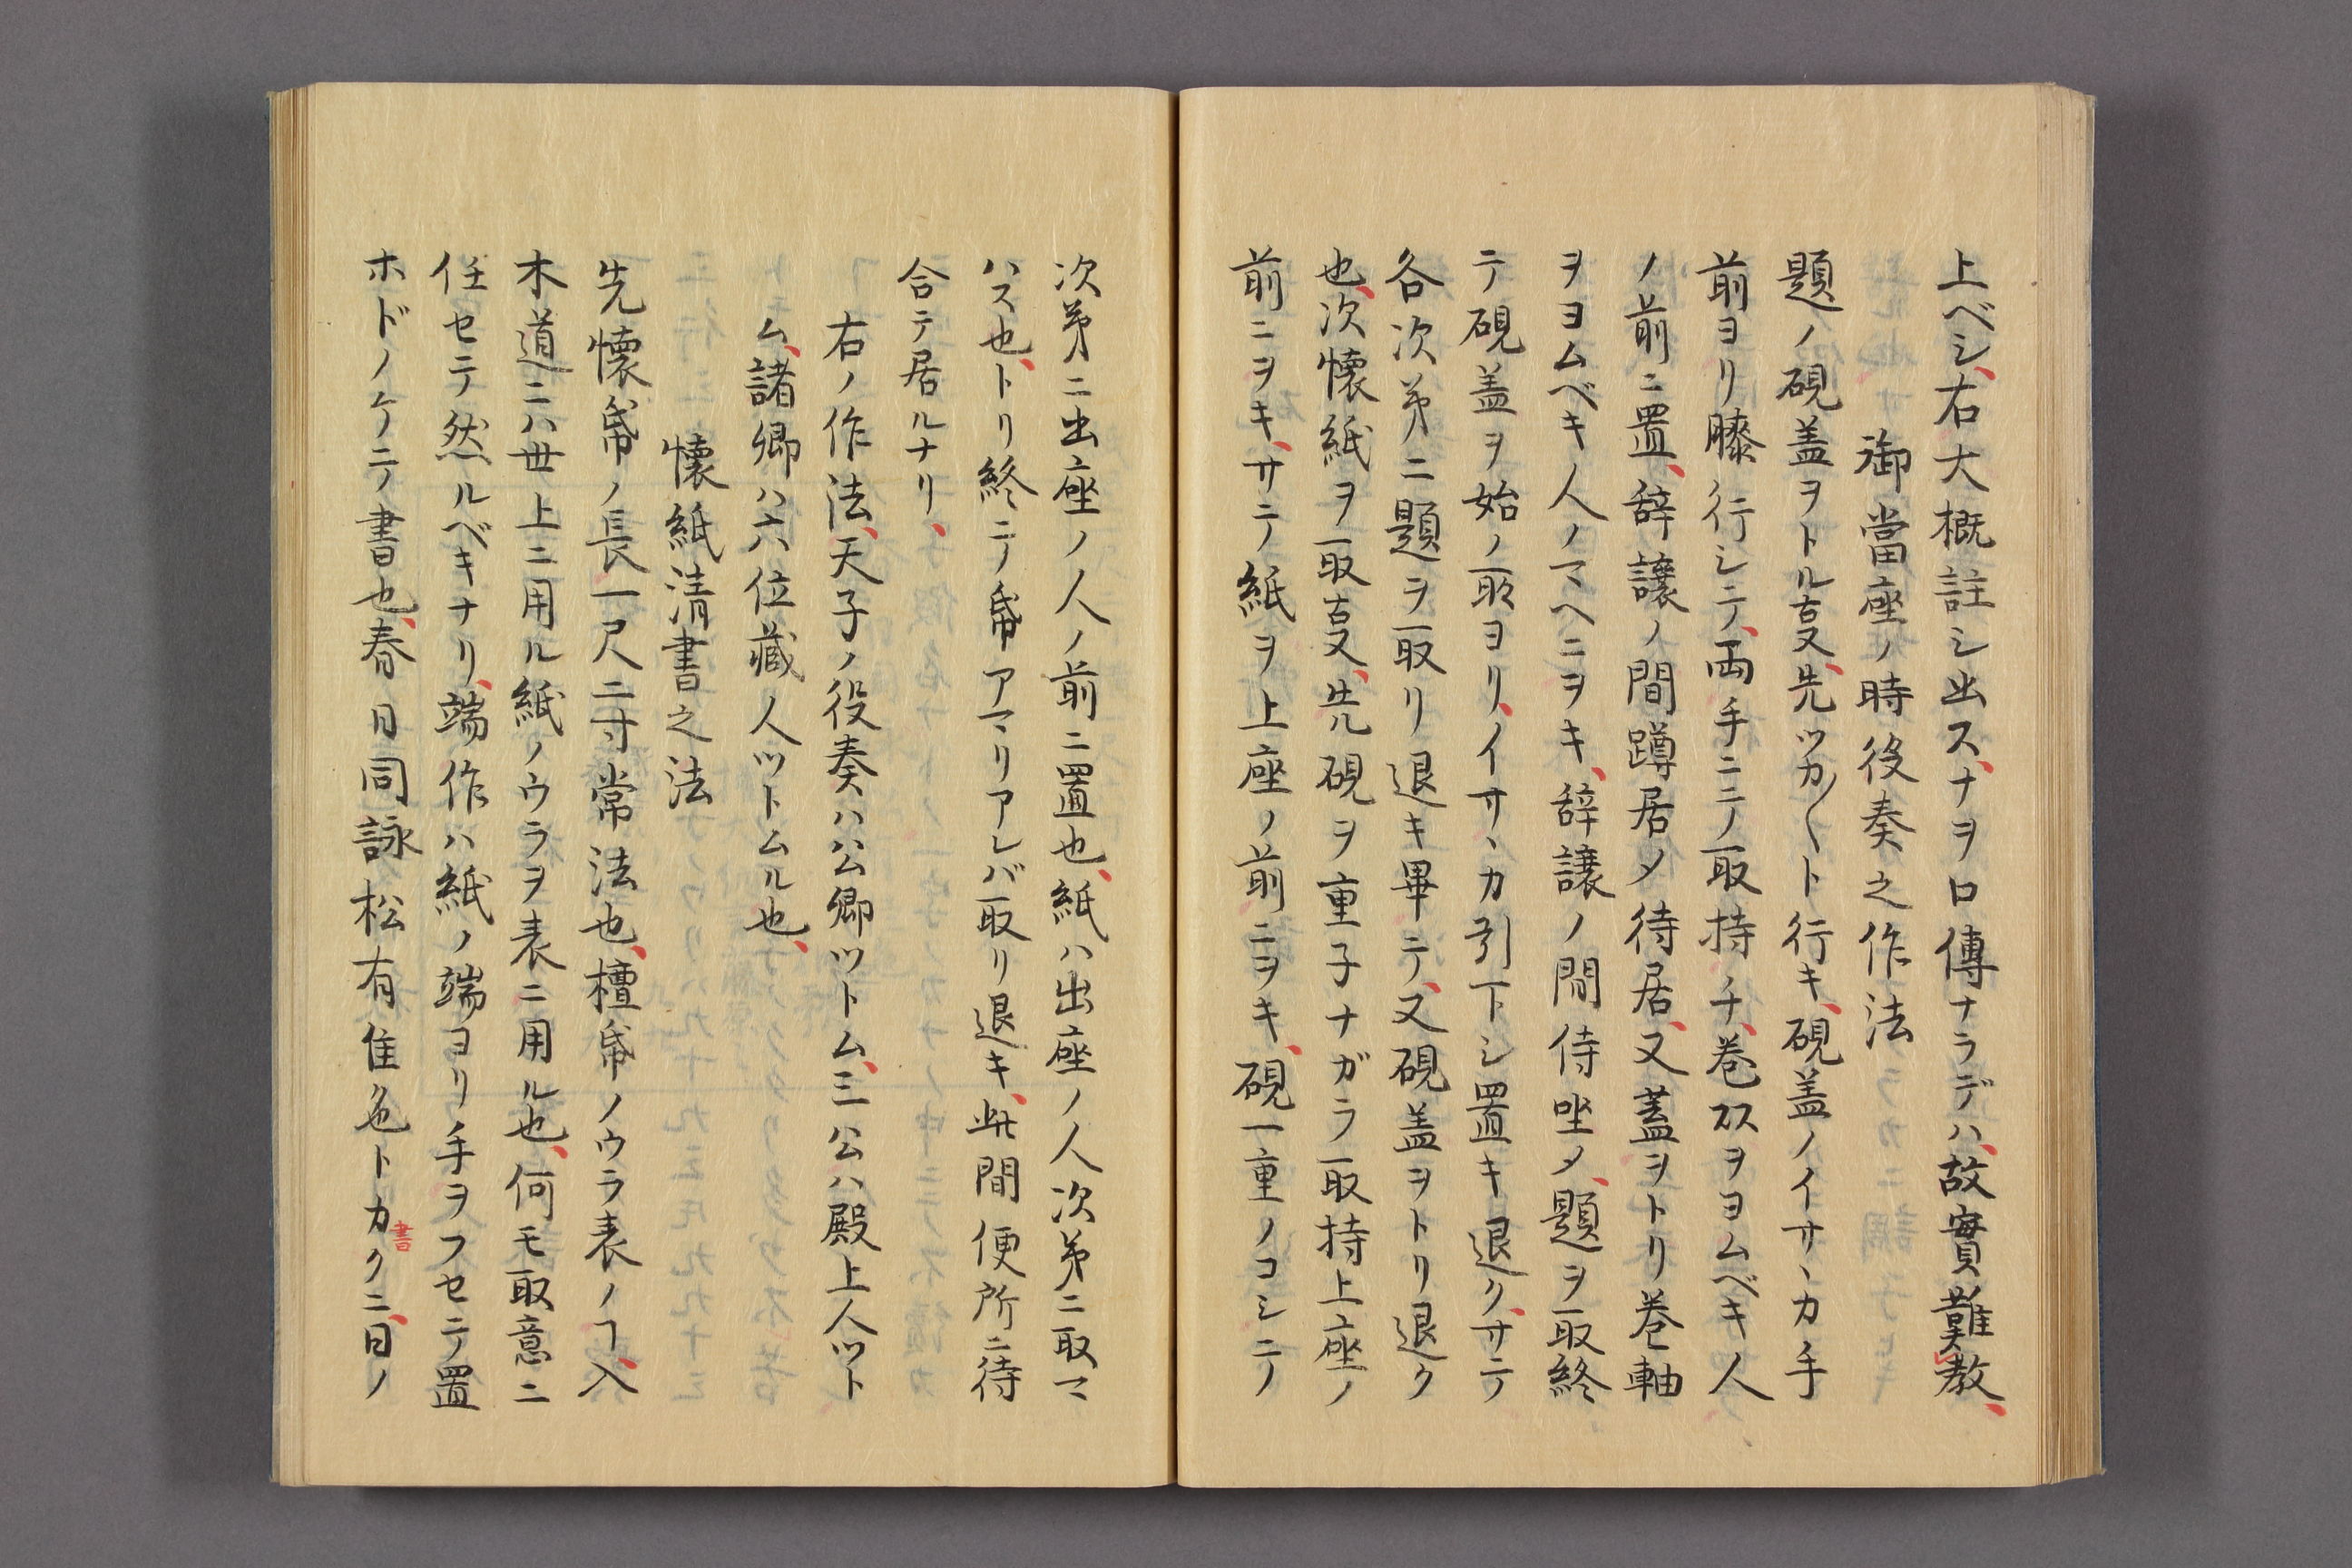 上ベシ、右大概註シ出ス、ナヲ口傳ナラデハ、故實難レ教、
御當座ノ時役奏之作法
題ノ硯盖ヲトル㕝、先ツカ〳〵ト行キ、硯盖ノイサヽカ手
前ヨリ膝行シテ、両手ニテ取持ノチ、巻双ヲヨムベキ人
ノ前ニ置、辞譲ノ間蹲居〆待居、又蓋ヲトリ巻軸
ヲヨムベキ人ノマヘニヲキ、辞譲ノ間侍坐〆、題ヲ取終
テ硯盖ヲ始ノ取ヨリ、イサヽカ引下シ置キ退ク、サテ
各次第ニ題ヲ取リ退キ畢テ、又硯盖ヲトリ退ク
也、次懐紙ヲ取㕝、先硯ヲ重子ナガラ取持上座ノ
前ニヲキ、サテ紙ヲ上座ノ前ニヲキ、硯一重ノコシテ
次第ニ出座ノ人ノ前ニ置也、紙ハ出座ノ人次第ニ取マ
ハス也、トリ終テ帋アマリアレバ取リ退キ、此間便所ニ待
合テ居ルナリ、
右ノ作法、天子ノ役奏ハ公卿ツトム、三公ハ殿上人ツト
ム、諸卿ハ六位藏人ツトムル也、
懐紙清書之法
先懐帋ノ長一尺二寸常法也、檀帋ノウラ表ノヿ、入
木道ニハ世上ニ用ル紙ノウラヲ表ニ用ル也、何モ取意ニ
任セテ然ルベキナリ、端作ハ紙ノ端ヨリ手ヲフセテ置
ホドノケテ書也、春日同詠松有佳色トカクニ、日ノ
書